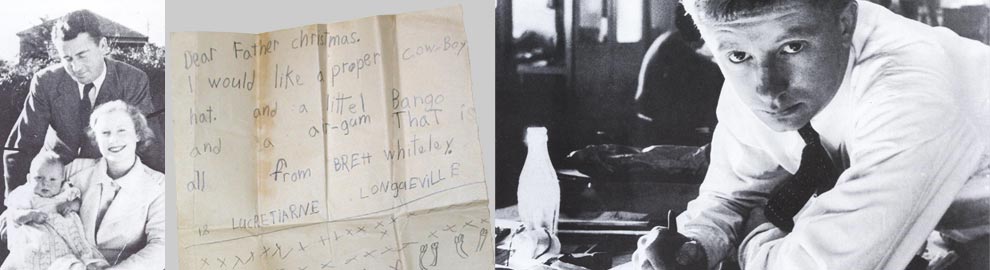 Dear Father christmas.
I would like a proper cow-Boy
hat. and a littel Bango
and a ar-gum That is
all from BREtt whiteley.
18 LUCRETIARNE LONgUEVILLE